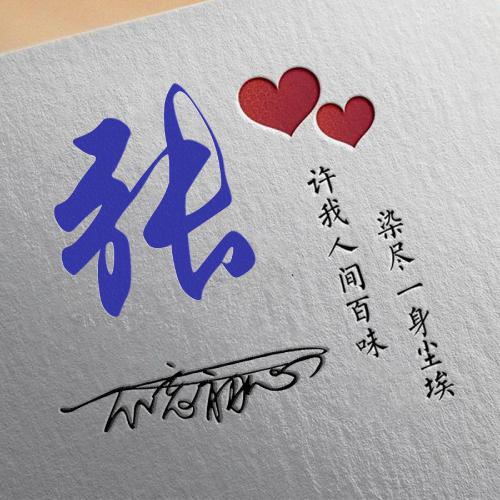 张
许我人间百味
染尽一身尘埃